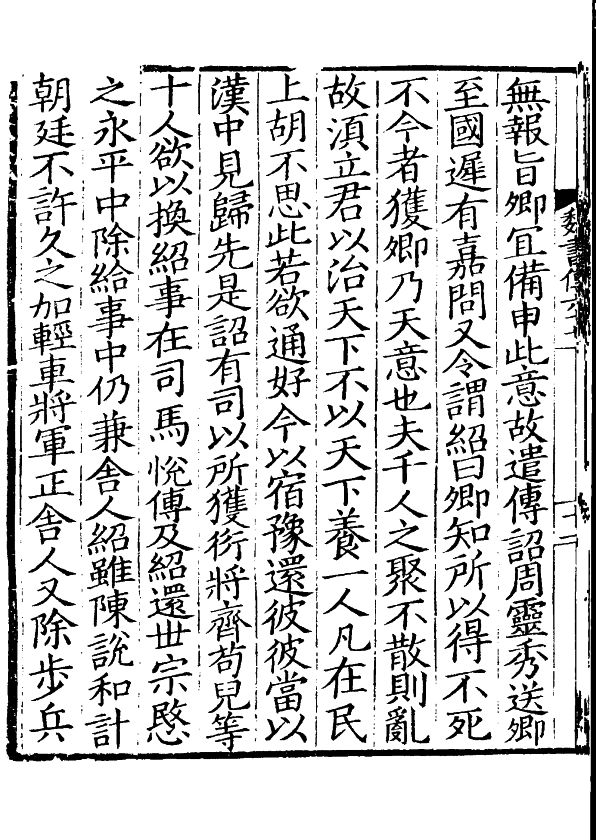 無報旨卿冝備申此意故遣傳詔周靈秀送卿
至國遲有嘉問又令謂紹曰卿知所以得不死
不今者獲卿乃天意也夫千人之聚不散則亂
故湏立君以治天下不以天下養一人凡在民
上胡不思此若欲通好今以宿豫還彼彼當以
漢中見歸先是詔有司以所獲衍將齊茍兒等
十人欲以換紹事在司馬悅傳及紹還世宗愍
之永平中除給事中仍兼舎人紹雖陳說和計
朝廷不許久之加輕車將軍正舎人又除步兵
魏書傳六十七
十二